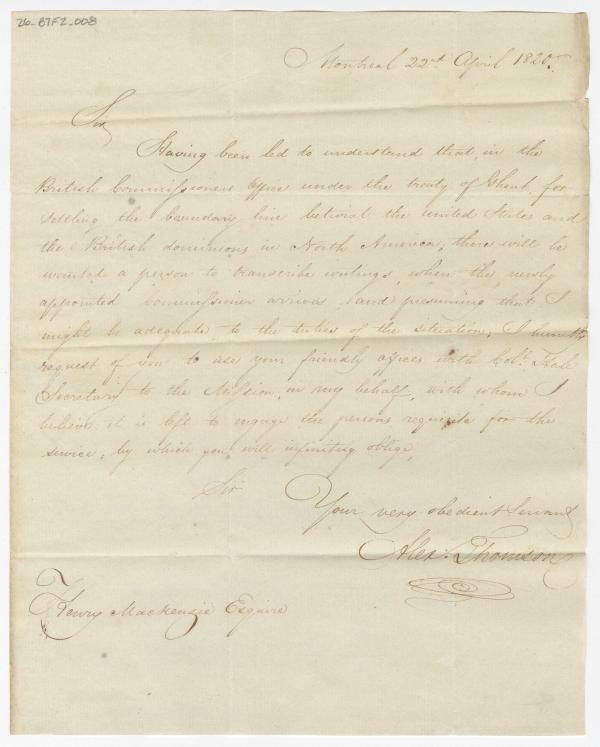 26-B7F2-008
Montreal 22d. April 1820.
Sir
Having been led to understand that in the
British Commissioners Office under the treaty of Ghent, for
settling the boundary line betwixt the united States and
the British dominions in North America, there will be
wanted a person to transcribe writings, when the newly
appointed Commissioner arrives, and presuming that I
might be adequate to the duties of the situation, I humbly
request of you to use your friendly offices with Colo. Hale
Secretary to the Mission, in my behalf, with whom I
believe it is left to engage the persons requisite for the
service, by which you will infinitely oblige,
Sir
Your very obedient Servant
Alexr. Thomson
Henry Mackenzie Esquire